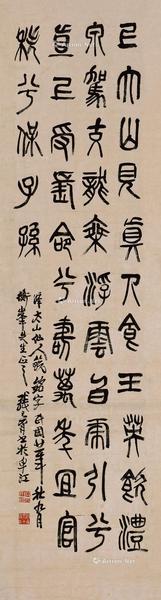 上大山見真人食玉英飲澧
泉駕交龍乘浮雲白虎引兮
直上受長命兮壽萬年宜官
秩兮保子孫
漢大山仙人鏡銘字 民國廿年秋月
先生正之 書於申江